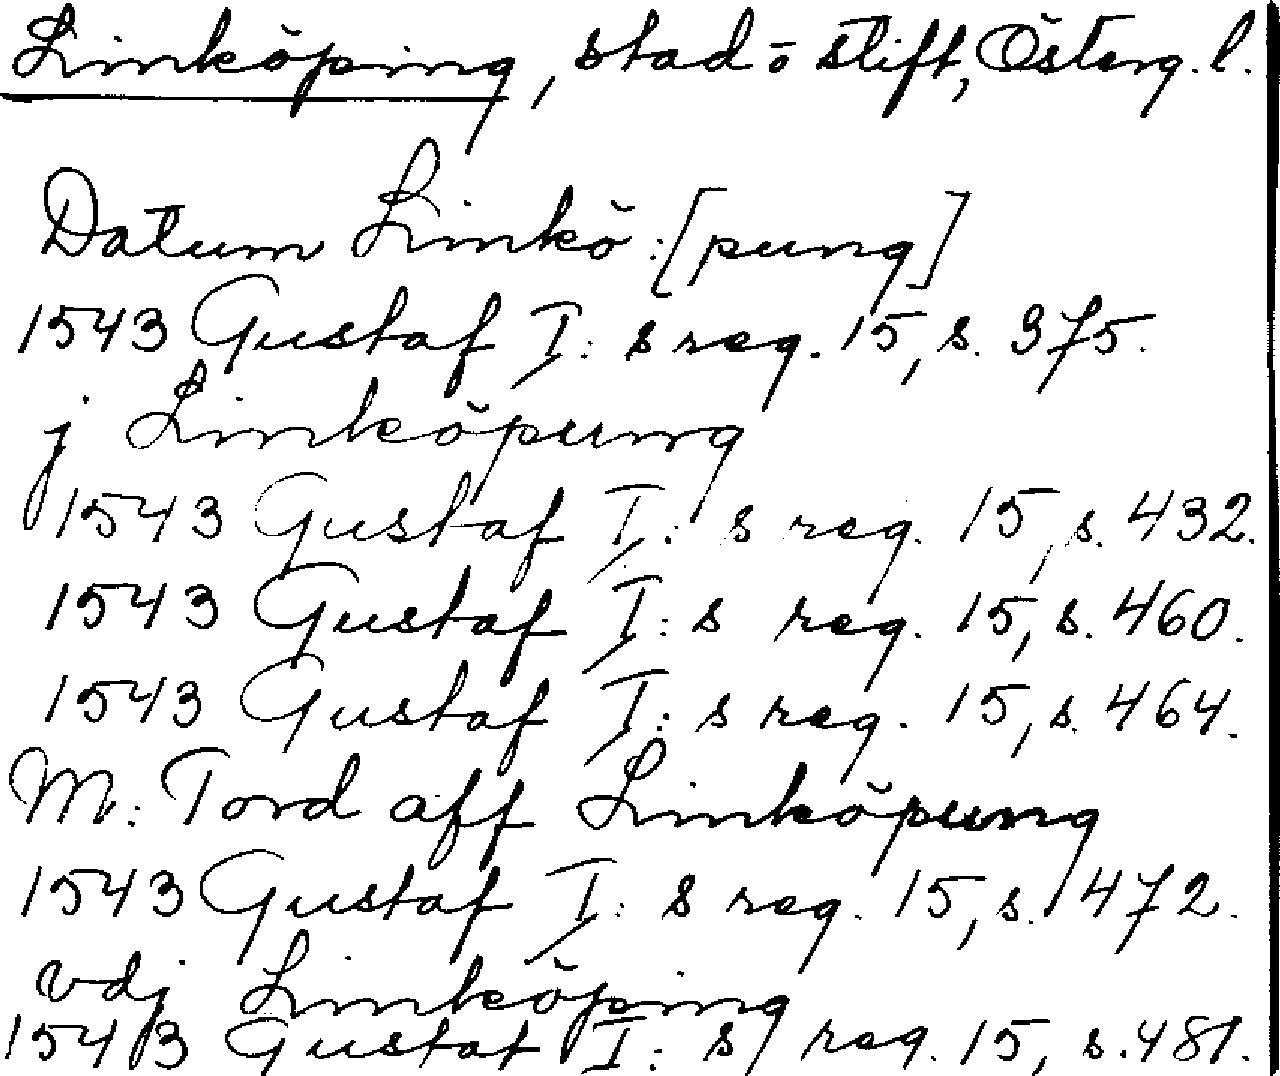 Linköping, stad o stift, Österg. l.
Datum Linkö:[pung]
1543 Gustaf I: s reg. 15, s. 375.
j Linköpung
1543 Gustaf I: s reg. 15, s. 432.
1543 Gustaf I: s reg. 15, s. 460.
1543 Gustaf I: s reg. 15, s. 464.
M: Tord aff Linköpung
1543 Gustaf I: s reg. 15, s. 472.
vdj Linköping
1543 Gustaf I: s reg. 15, s. 481.